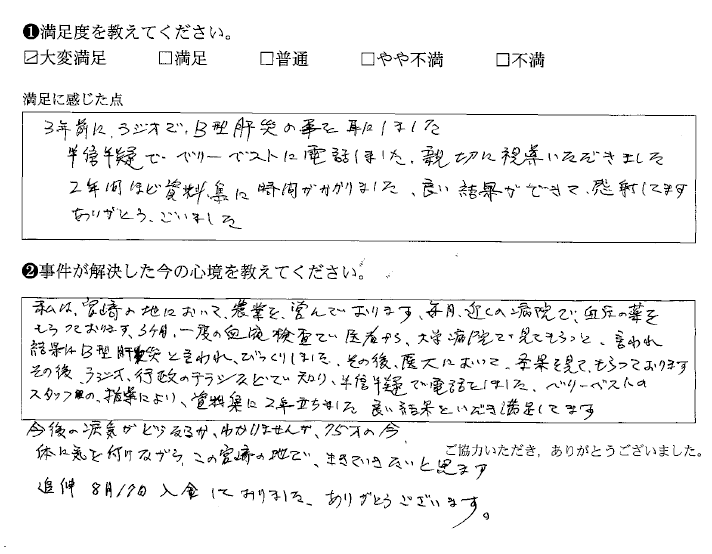 ❶満足度を教えてください。
☑大変満足 □満足 □普通 □やや不満 □不満
満足に感じた点
3年前に、ラジオで、B型肝炎の事を耳にしました
半信半疑で、ベリーベストに電話しました、親切に視察いただきました
2年間ほど資料集に時間がかかりました、良い結果ができて、感謝してます
ありがとう、ございました
❷事件が解決した今の心境を教えてください。
私は、宮崎の地において、農業を、営んでおります、毎月、近くの病院で、血圧の薬を
もらっております、3ヶ月、一度の血液検査で医者から、大学病院で見てもらっと、言われ
結果はB型肝炎と言われ、びっくりしました、その後、医大において、 を見て、もらっております
その後、ラジオ、行政のチラシなどで知り、半信半疑で電話をしました、ベリーベストの
スタッフ の、指導により、資料集に2年立ちました 良い結果をいただき満足してます
今後の病気がどうなるか、わかりませんが、75才の今
体に気を付けながら、この宮崎の地で、生きていきたいと思ます
ご協力いただき，ありがとうございました。
追伸 8月17日 入金しておりました、ありがとうございます。